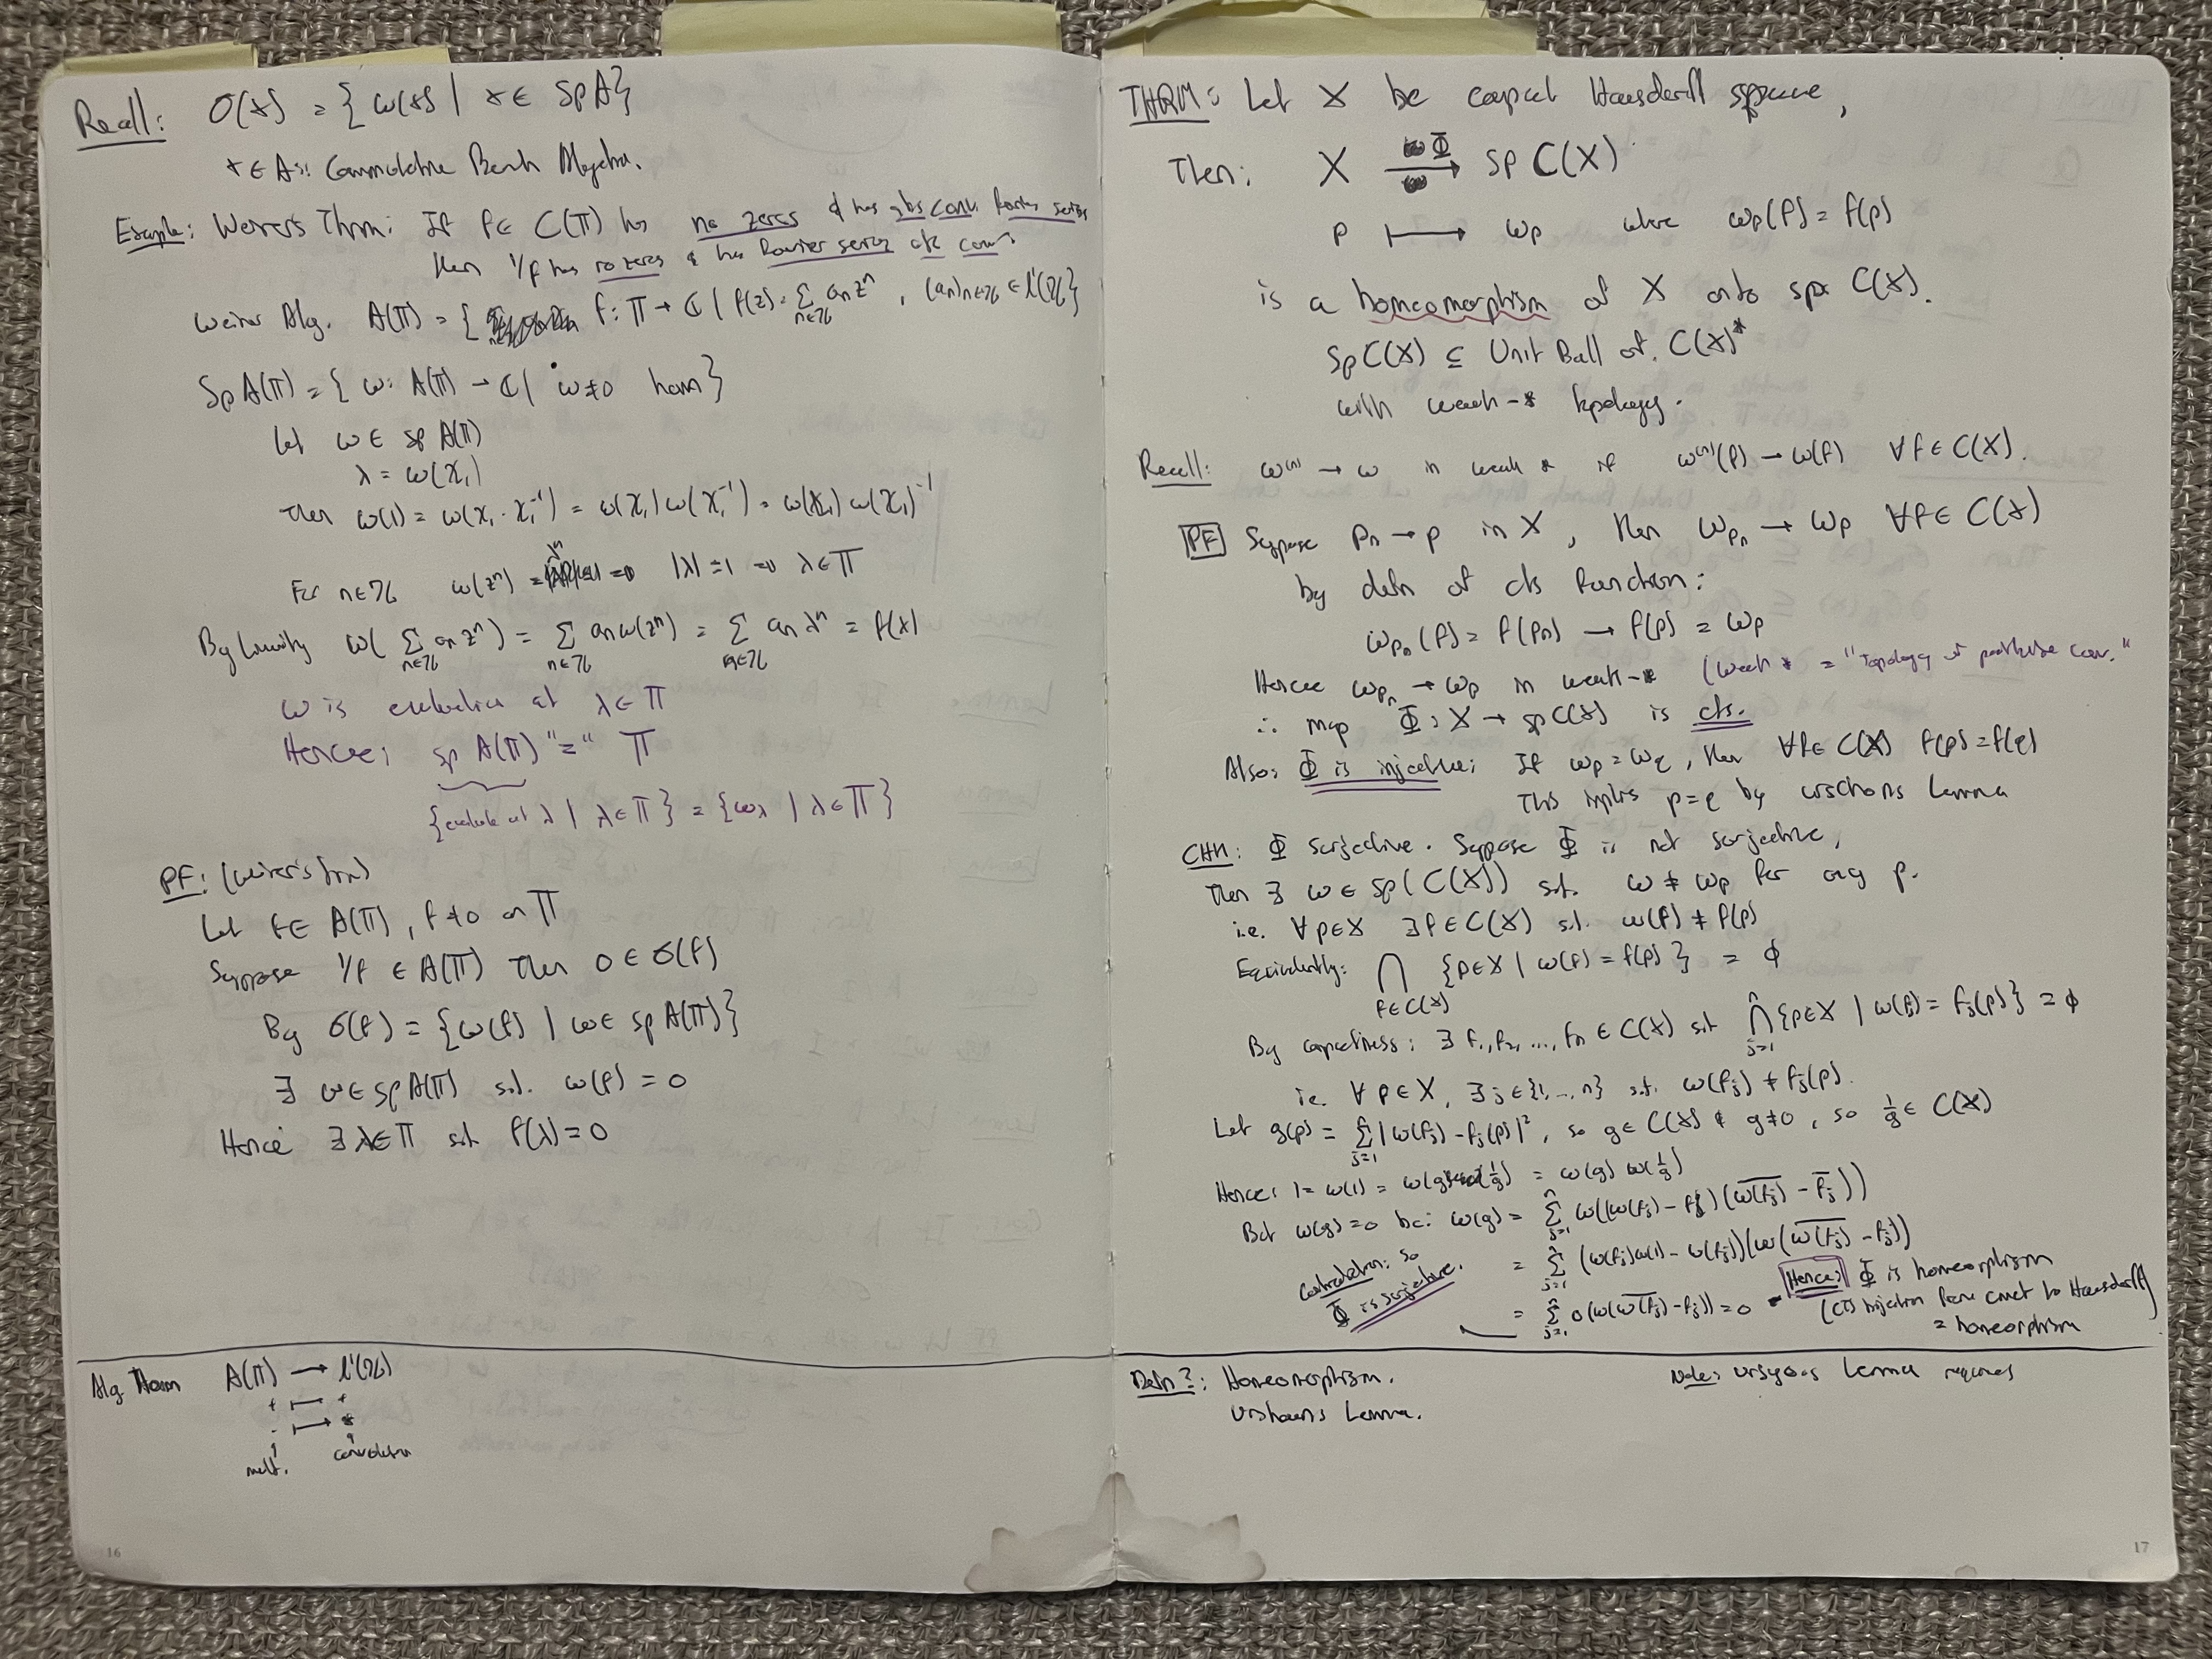 Recall: σ(x) = {ω(x) | x ∈ Sp A}
x ∈ A: Commutative Banach Algebra.
Example: Wener's Thrm: If f ∈ C(𝕋) has no zeros & has abs conv. Fourier series
then 1/f has no zeros & has Fourier series abs conv.
Weiner Alg. A(𝕋) = { f: 𝕋 → ℂ | f(z) = Σ_{n∈ℤ} aₙzⁿ, (aₙ)n∈ℤ ∈ l¹(ℤ)}
Sp A(𝕋) = {ω: A(𝕋) → ℂ | ω ≠ 0 hom}
Let ω ∈ Sp A(𝕋)
λ = ω(χ₁)
Then ω(1) = ω(χ₁·χ₁⁻¹) = ω(χ₁)ω(χ₁⁻¹) = ω(χ₁)ω(χ₁)⁻¹
For n∈ℤ ω(zⁿ) = λⁿ ⇒ |λ| = 1 ⇒ λ ∈ 𝕋
By linearity ω(Σ_{n∈ℤ} aₙzⁿ) = Σ_{n∈ℤ} aₙω(zⁿ) = Σ_{n∈ℤ} aₙλⁿ = f(λ)
ω is evaluation at λ ∈ 𝕋
Hence: Sp A(𝕋) "=" 𝕋
{evaluate at λ | λ ∈ 𝕋} = {ω_λ | λ ∈ 𝕋}
PF: (Weiner's thrm)
Let f ∈ A(𝕋), f ≠ 0 on 𝕋
Suppose 1/f ∉ A(𝕋) then 0 ∈ σ(f)
By σ(f) = {ω(f) | ω ∈ Sp A(𝕋)}
∃ ω ∈ Sp A(𝕋) s.t. ω(f) = 0
Hence ∃ λ ∈ 𝕋 s.t. f(λ) = 0
Alg Hom A(𝕋) → l¹(ℤ)
+ ↦ +
· ↦ *
mult. convolution
16
THRM: Let X be compact Hausdorff space,
Then: X →^Φ Sp C(X)
p ↦ ω_p where ω_p(f) = f(p)
is a homeomorphism of X onto Sp C(X).
Sp C(X) ⊆ Unit Ball of C(X)*
with weak-* topology.
Recall: ω⁽ⁿ⁾ → ω in weak * if ω⁽ⁿ⁾(f) → ω(f) ∀f ∈ C(X).
PF Suppose pₙ → p in X, then ω_pₙ → ω_p ∀f ∈ C(X)
by defn of cts function:
ω_pₙ(f) = f(pₙ) → f(p) = ω_p
Hence ω_pₙ → ω_p in weak-* (weak * = "topology of pointwise conv."
∴ map Φ: X → Sp C(X) is cts.
Also: Φ is injective: If ω_p = ω_q, then ∀f ∈ C(X) f(p) = f(q)
This implies p = q by urisohns lemma
CHK: Φ surjective. Suppose Φ is not surjective,
Then ∃ ω ∈ Sp(C(X)) s.t. ω ≠ ω_p for any p.
i.e. ∀p∈X ∃f∈C(X) s.t. ω(f) ≠ f(p)
Equivalently: ⋂_{f∈C(X)} {p∈X | ω(f) = f(p)} = ∅
By compactness: ∃ f₁, f₂, ..., fₙ ∈ C(X) s.t ⋂_{j=1}^n {p∈X | ω(fⱼ) = fⱼ(p)} = ∅
i.e. ∀ p∈X, ∃ j ∈ {1, ..., n} s.t. ω(fⱼ) ≠ fⱼ(p).
Let g(p) = Σ_{j=1}^n |ω(fⱼ) - fⱼ(p)|², so g ∈ C(X) & g ≠ 0, so 1/g ∈ C(X)
Hence: 1 = ω(1) = ω(g·1/g) = ω(g) ω(1/g)
But ω(g) = 0 bc: ω(g) = Σ_{j=1}^n ω((ω(fⱼ) - fⱼ)(\overline{ω(fⱼ)} - \overline{fⱼ}))
= Σ_{j=1}^n (ω(fⱼ)ω(1) - ω(fⱼ))(ω(\overline{ω(fⱼ)} - \overline{fⱼ}))
= Σ_{j=1}^n 0(ω(\overline{ω(fⱼ)} - \overline{fⱼ})) = 0
Contradiction: so
Φ is surjective.
Hence; Φ is homeomorphism
(cts bijection from cmct to Hausdorff)
= homeomorphism
Defn?: Homeomorphism.
Urishons Lemma.
Note: urisyons lemma requires
17